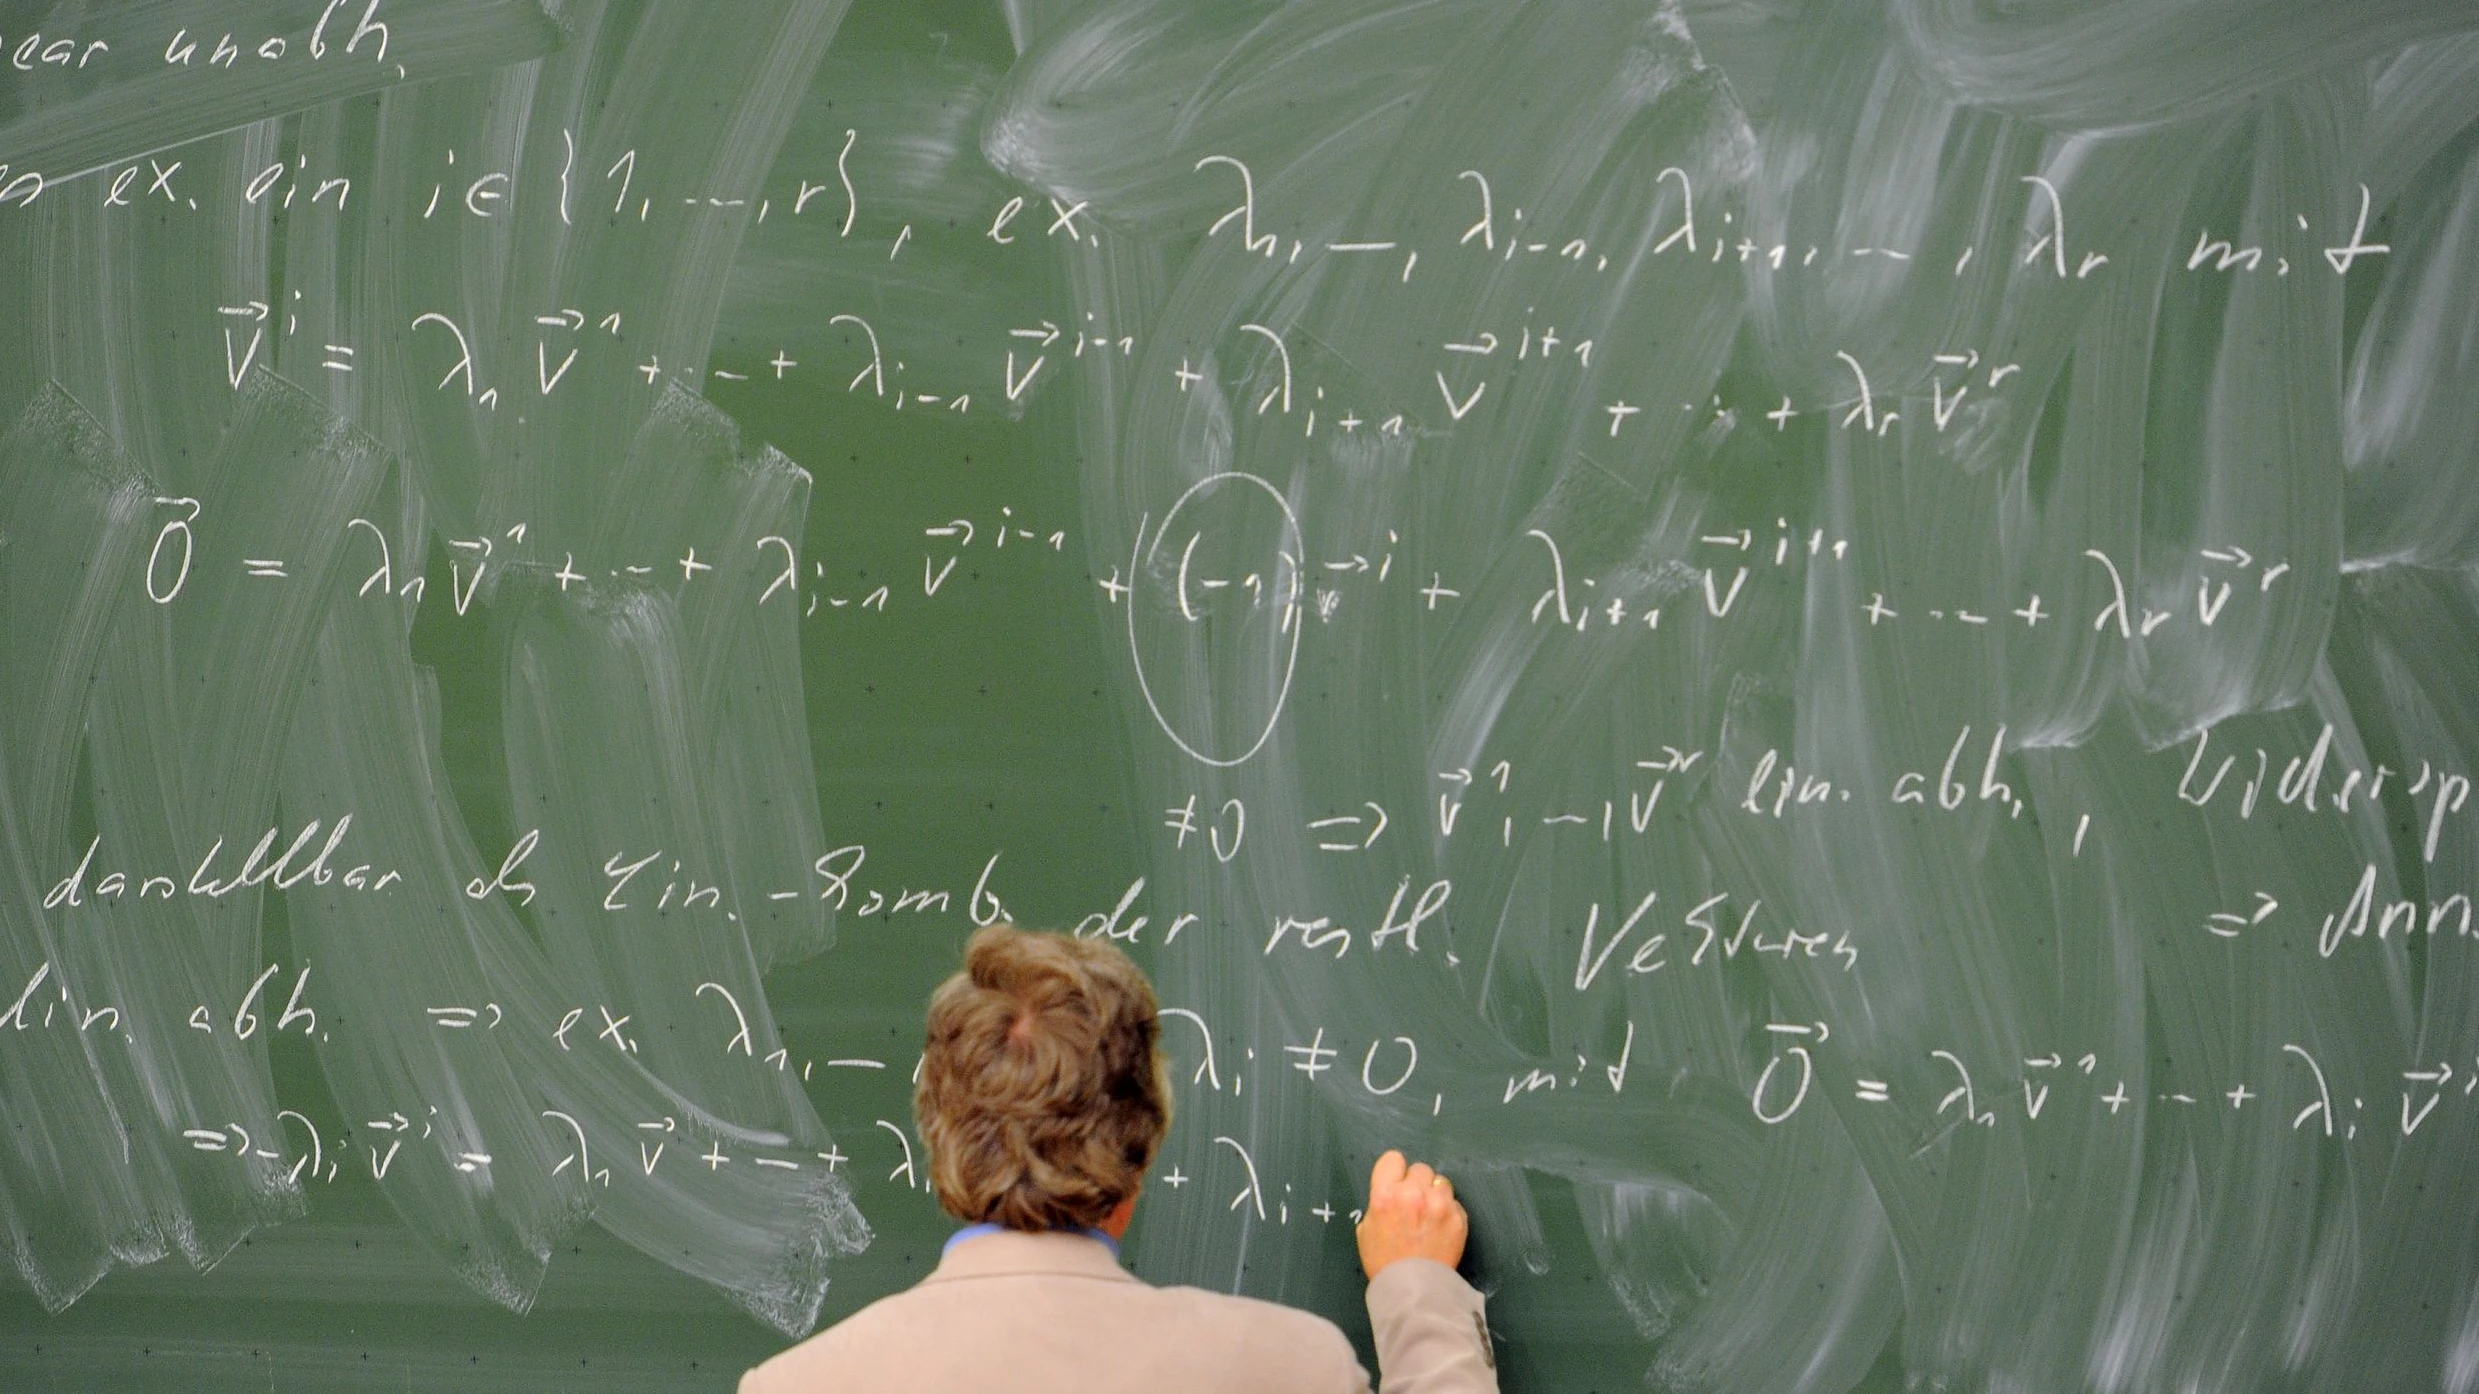 ear unabh,
ex. ein i ∈ {1, ..., r}, ex. λ₁, —, λᵢ₋₁, λᵢ₊₁, --, λᵣ mit
v⃗ⁱ = λ₁ v⃗¹ + ... + λᵢ₋₁ v⃗ⁱ⁻¹ + λᵢ₊₁ v⃗ⁱ⁺¹ + ... + λᵣ v⃗ʳ
0⃗ = λ₁ v⃗¹ + ... + λᵢ₋₁ v⃗ⁱ⁻¹ + (-1) v⃗ⁱ + λᵢ₊₁ v⃗ⁱ⁺¹ + ... + λᵣ v⃗ʳ
≠0 ⇒ v⃗¹, –, v⃗ʳ lin. abh., Widersp
darstellbar als Lin.-Komb. der restl. Vektoren ⇒ Ann.
lin. abh. ⇒ ex. λ₁, — λᵢ ≠ 0, mit 0⃗ = λ₁ v⃗¹ + ... + λᵢ v⃗ⁱ
⇒ -λᵢ v⃗ⁱ = λ₁ v⃗ + — + λ + λᵢ₊₁